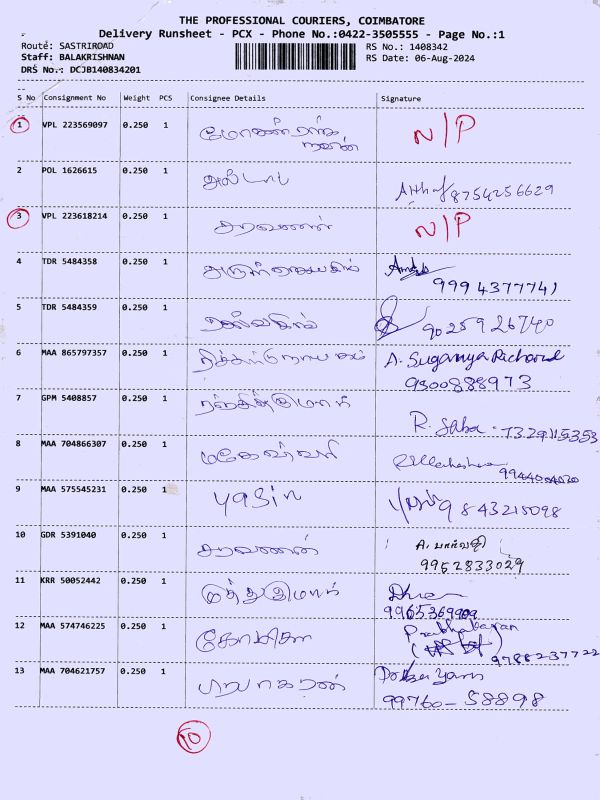 THE PROFESSIONAL COURIERS, COIMBATORE
Delivery Runsheet - PCX - Phone No.:0422-3505555 - Page No.:1
Route: SASTRIROAD
RS No.: 1408342
Staff: BALAKRISHNAN
RS Date: 06-Aug-2024
DRS No.: DCJB140834201
S No Consignment No Weight PCS Consignee Details Signature
1 VPL 223569097 0.250 1 N/P
2 POL 1626615 0.250 1 அல்டாப் 8754256629
3 VPL 223618214 0.250 1 சரவணன் N/P
4 TDR 5484358 0.250 1 9994377741
5 TDR 5484359 0.250 1 செல்வகுமார் 9025926740
6 MAA 865797357 0.250 1 A. Suganya Richard
9300888973
7 GPM 5408857 0.250 1 ரஞ்சித்குமார் R. Saba - 7329115353
8 MAA 704866307 0.250 1 மகேஸ்வரி
9944004020
9 MAA 575545231 0.250 1 yasin 9843215098
10 GDR 5391040 0.250 1 சரவணன் A. பார்வதி
9952833029
11 KRR 50052442 0.250 1 முத்துகுமார்
9965369909
12 MAA 574746225 0.250 1 Prabhakaran
9788237722
13 MAA 704621757 0.250 1 பிரபாகரன்
99760-58898
10